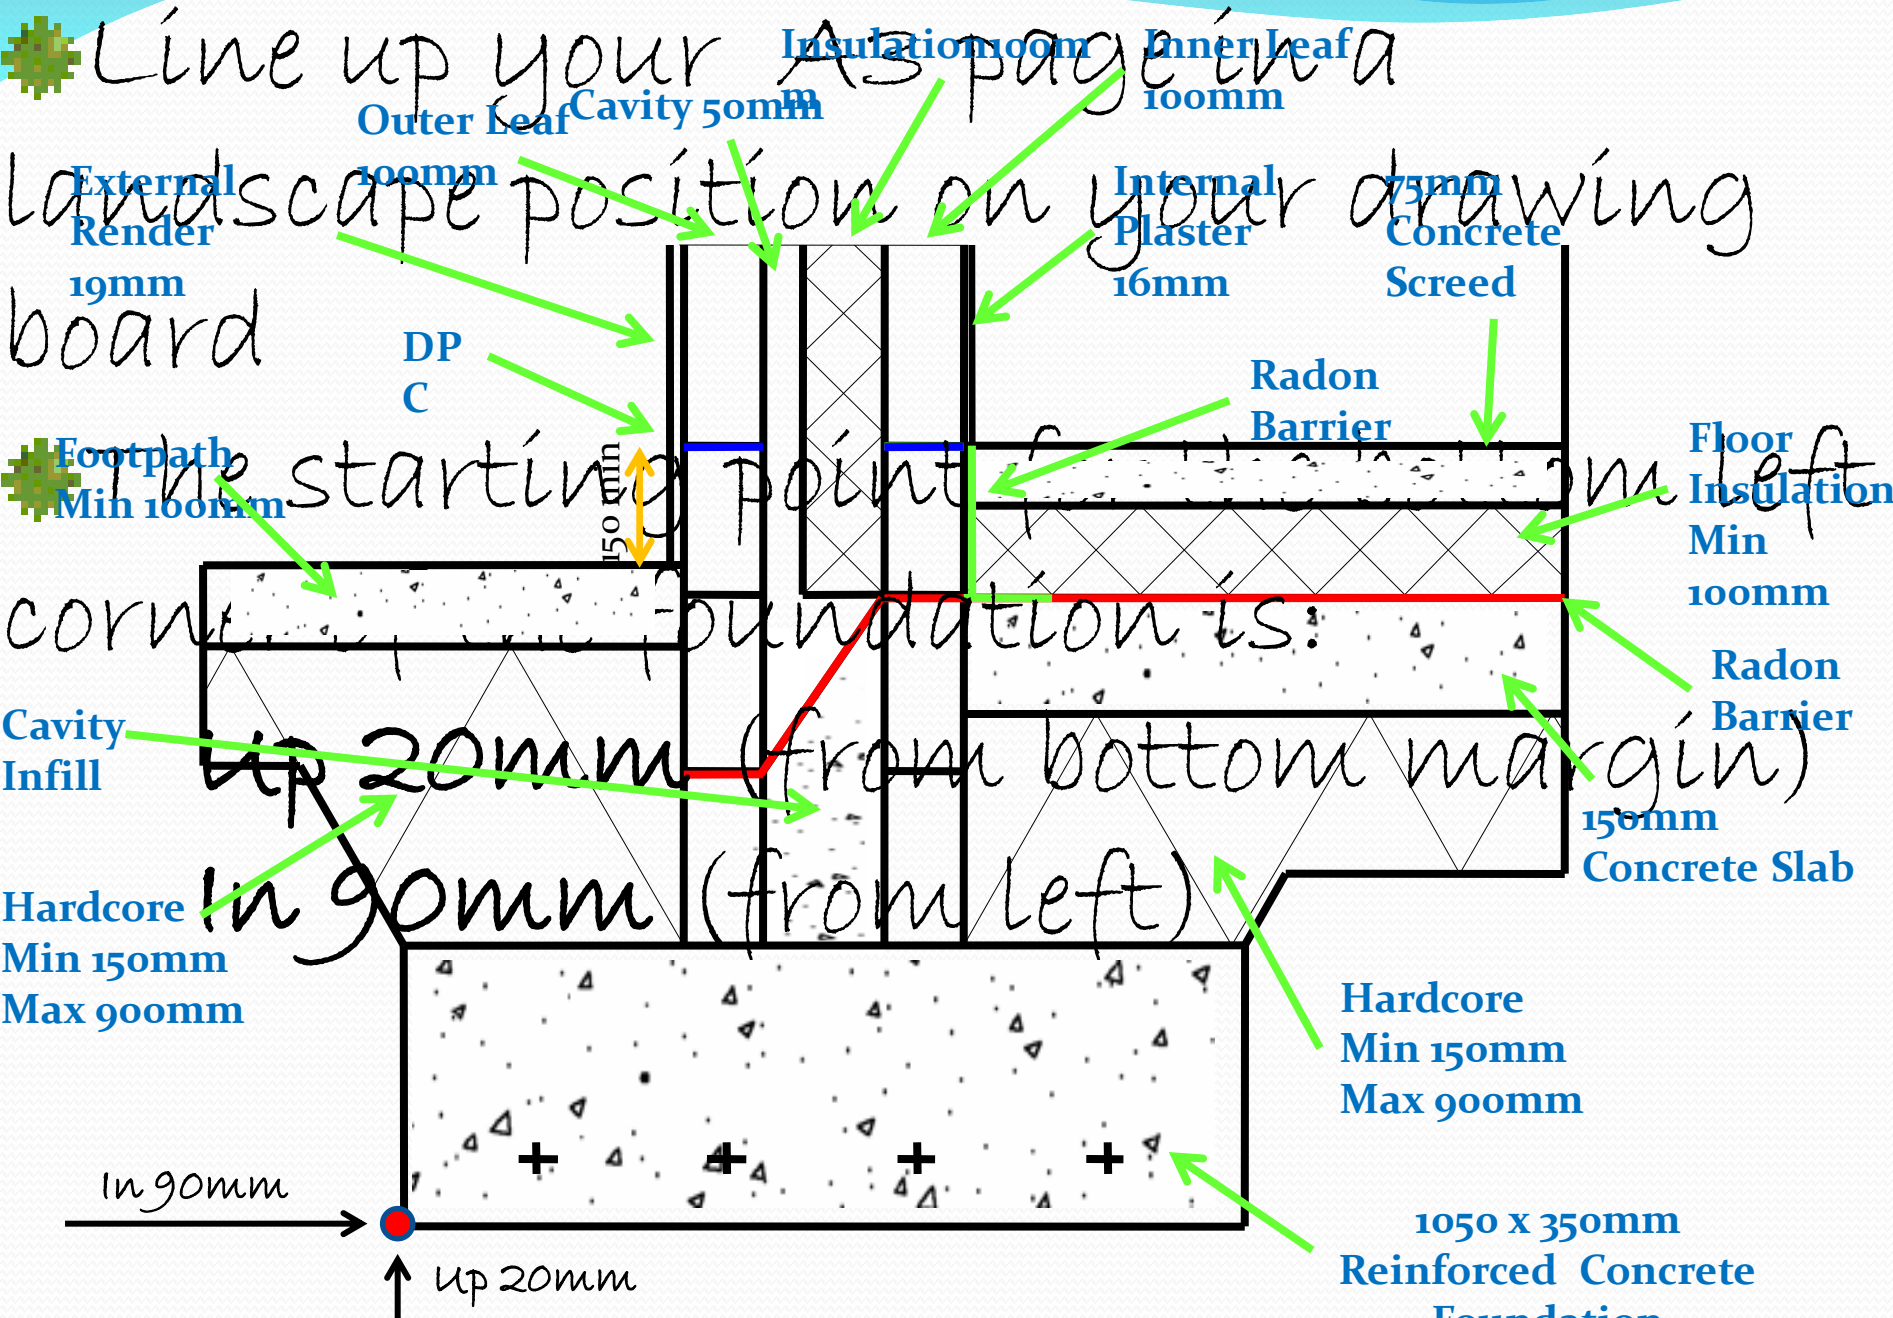 Line up your A3 page in a
landscape position on your drawing
board
The starting point f left
corn foundation is:
Up 20mm (from bottom margin)
In 90mm (from left)
Insulation100m
m
Inner Leaf
100mm
Cavity 50mm
Outer Leaf
100mm
External
Render
19mm
Internal
Plaster
16mm
75mm
Concrete
Screed
DP
C
Radon
Barrier
Footpath
Min 100mm
150 min
Floor
Insulation
Min
100mm
Radon
Barrier
Cavity
Infill
150mm
Concrete Slab
Hardcore
Min 150mm
Max 900mm
Hardcore
Min 150mm
Max 900mm
In 90mm
Up 20mm
1050 x 350mm
Reinforced Concrete
Foundation